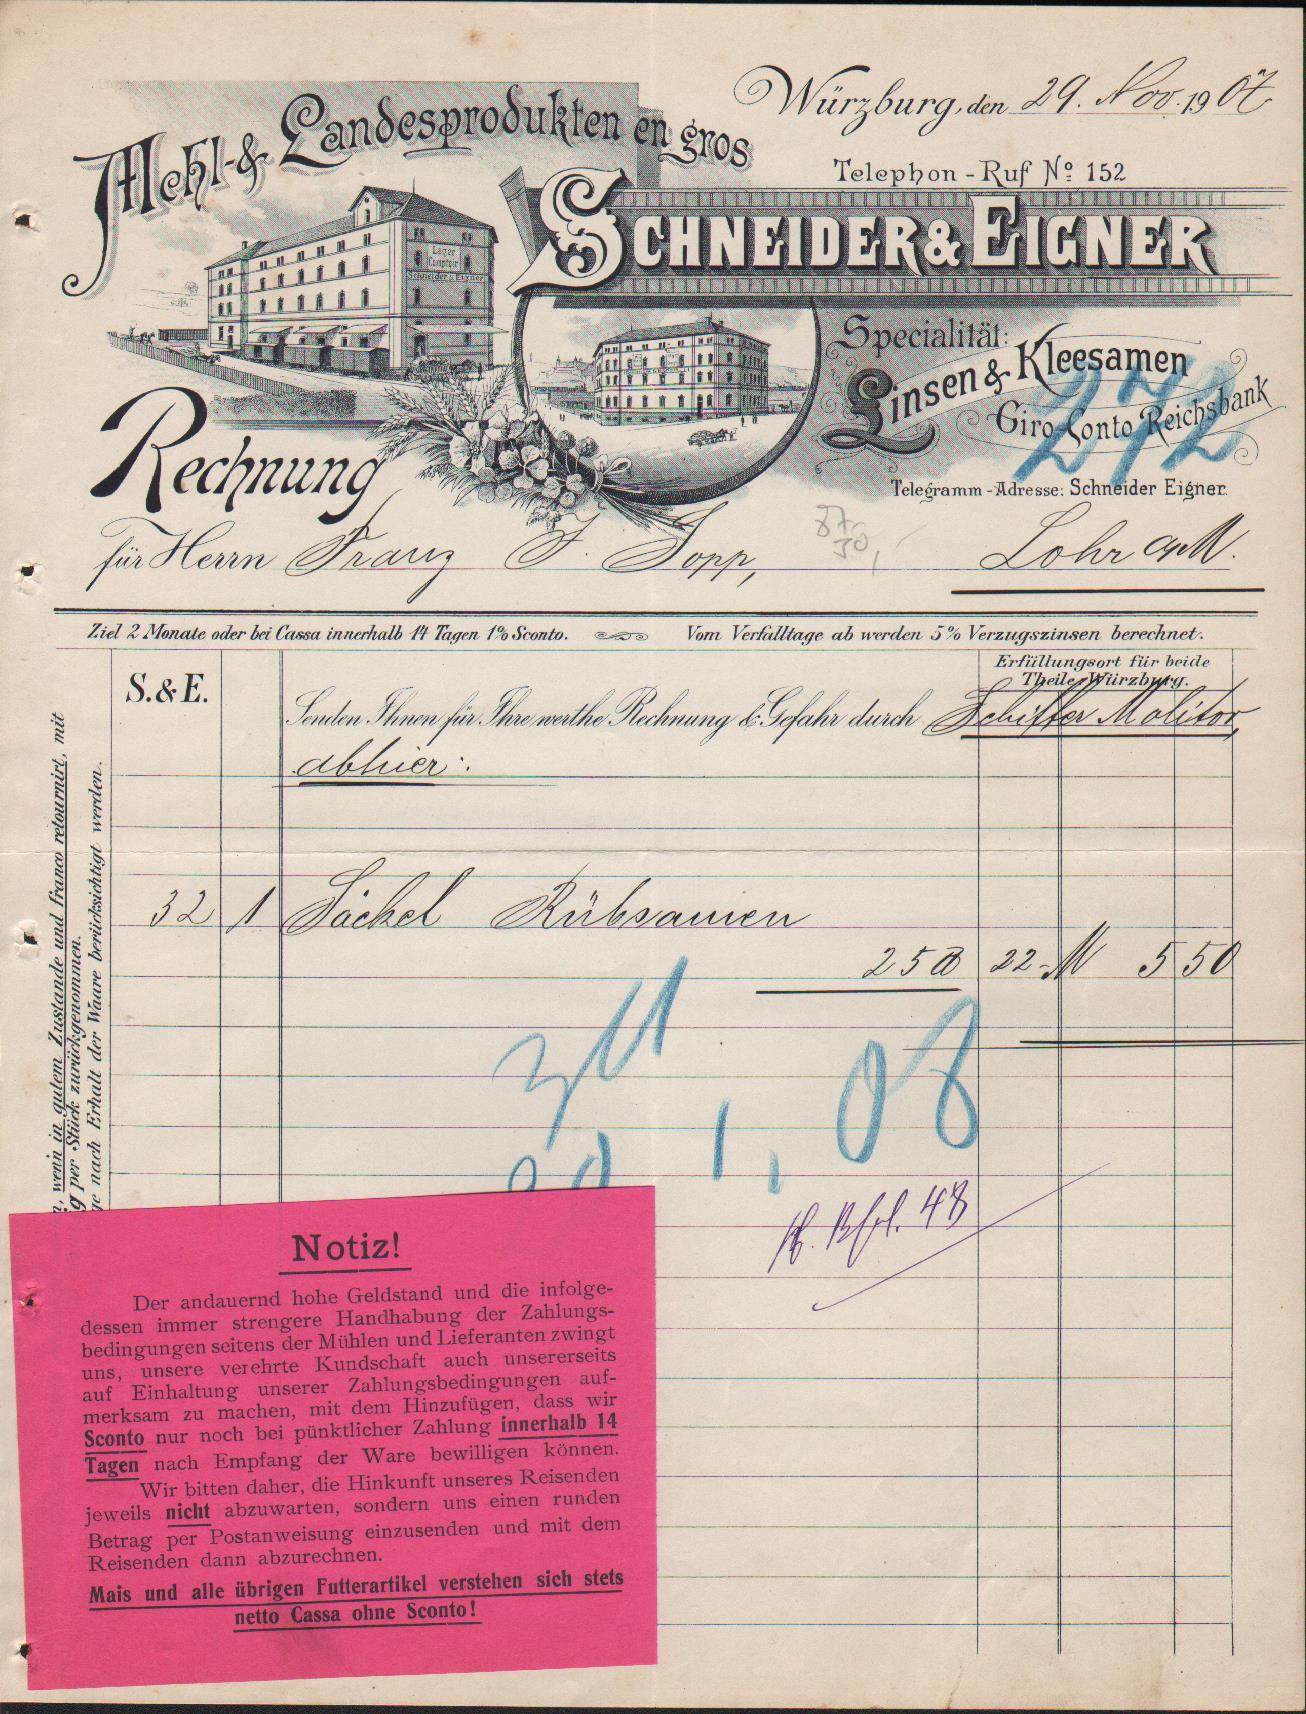 Würzburg, den 29. Nov. 1907
Mehl- & Landesprodukten en gros
Telephon-Ruf No. 152
SCHNEIDER & EIGNER
Lager
Comptoir
Schneider & Eigner
Specialität:
Linsen & Kleesamen
Giro-Conto Reichsbank
272
Telegramm-Adresse: Schneider Eigner.
Rechnung
für Herrn Franz J. Sopp, Lohr a/M.
Ziel 2 Monate oder bei Cassa innerhalb 14 Tagen 1% Sconto. Vom Verfalltage ab werden 5% Verzugszinsen berechnet.
Erfüllungsort für beide
Theile Würzburg.
S. & E.
Senden Ihnen für Ihre werthe Rechnung & Gefahr durch Schiffer Molitor,
abhier:
32 1 Säckel Rübsamen
25 22- M 5 50
1. 08
48
wenn in gutem Zustande und franco retournirt, mit
per Stück zurückgenommen.
nach Erhalt der Waare berücksichtigt werden.
Notiz!
Der andauernd hohe Geldstand und die infolge-
dessen immer strengere Handhabung der Zahlungs-
bedingungen seitens der Mühlen und Lieferanten zwingt
uns, unsere verehrte Kundschaft auch unsererseits
auf Einhaltung unserer Zahlungsbedingungen auf-
merksam zu machen, mit dem Hinzufügen, dass wir
Sconto nur noch bei pünktlicher Zahlung innerhalb 14
Tagen nach Empfang der Ware bewilligen können.
Wir bitten daher, die Hinkunft unseres Reisenden
jeweils nicht abzuwarten, sondern uns einen runden
Betrag per Postanweisung einzusenden und mit dem
Reisenden dann abzurechnen.
Mais und alle übrigen Futterartikel verstehen sich stets
netto Cassa ohne Sconto!